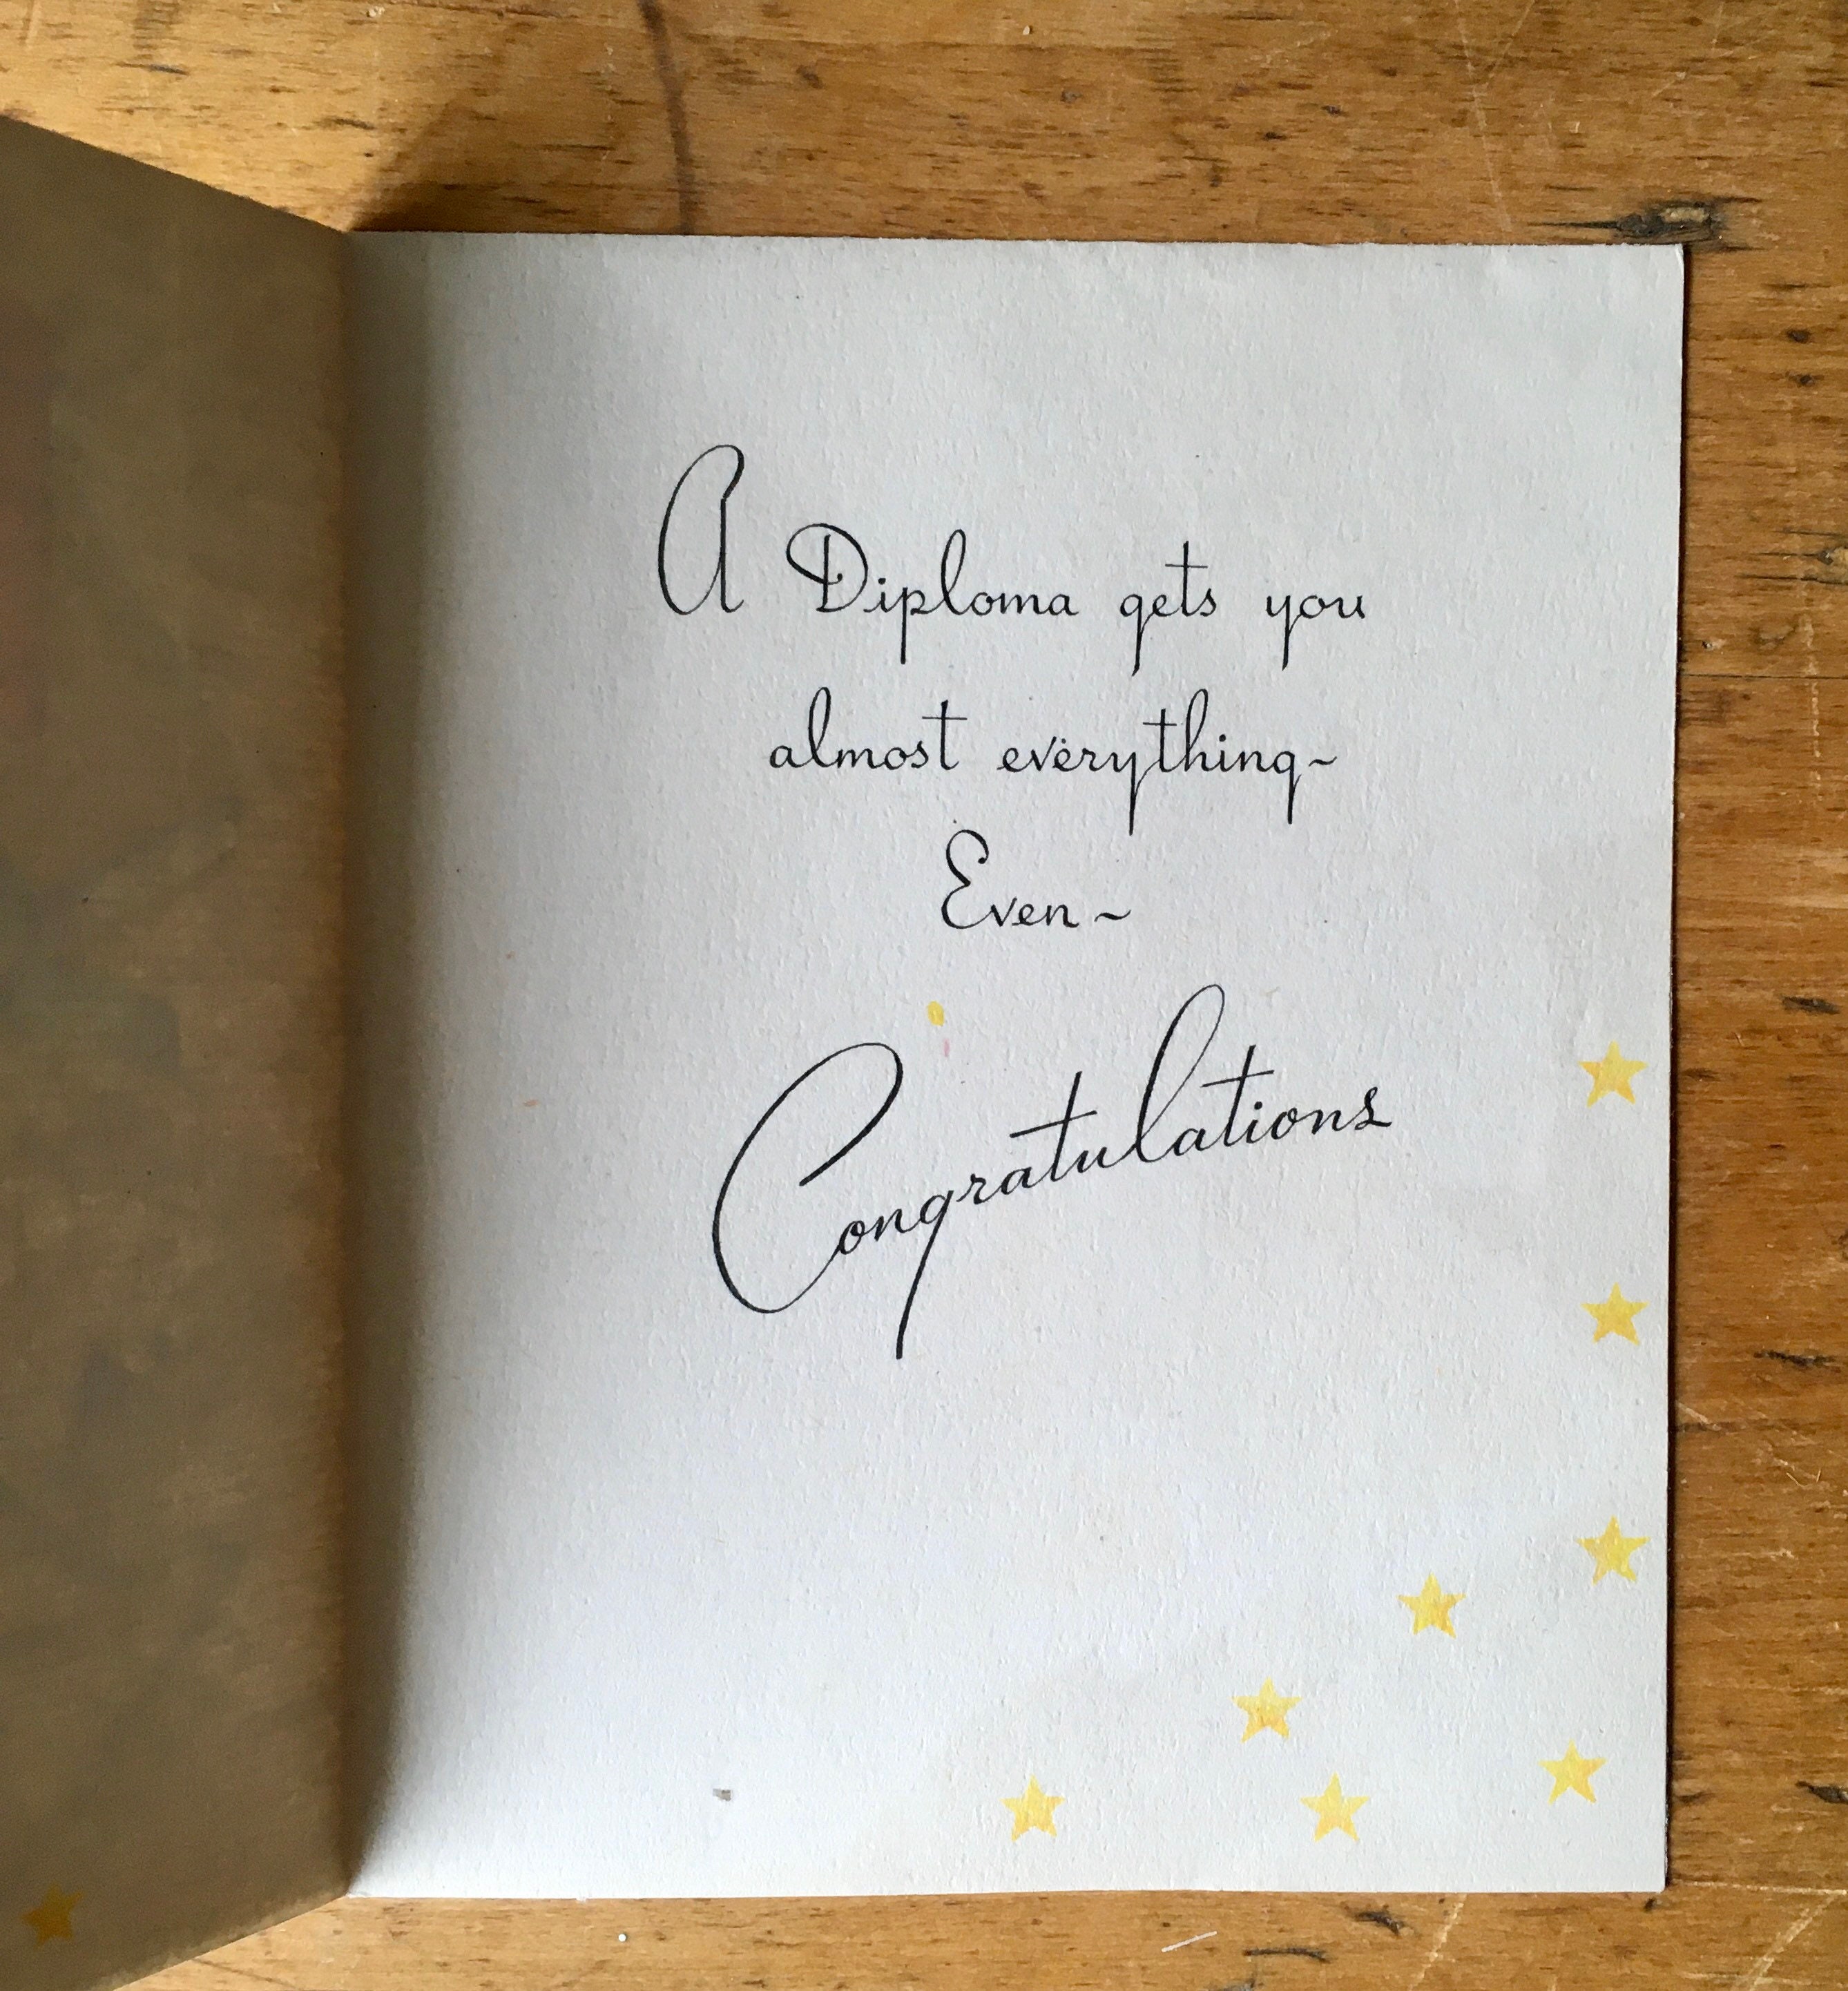 A Diploma gets you
almost everything~
Even~
Congratulations